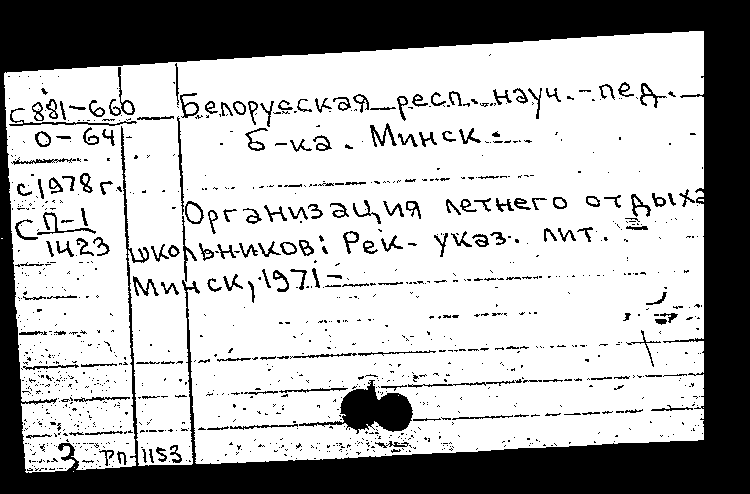 С881-660 Белорусская респ. науч.-пед.
О-64 б-ка. Минск.
с 1978 г.
С П-1 Организация летнего отдыха
1423 школьников: Рек. указ. лит. –
Минск, 1971–
3 РП-1153